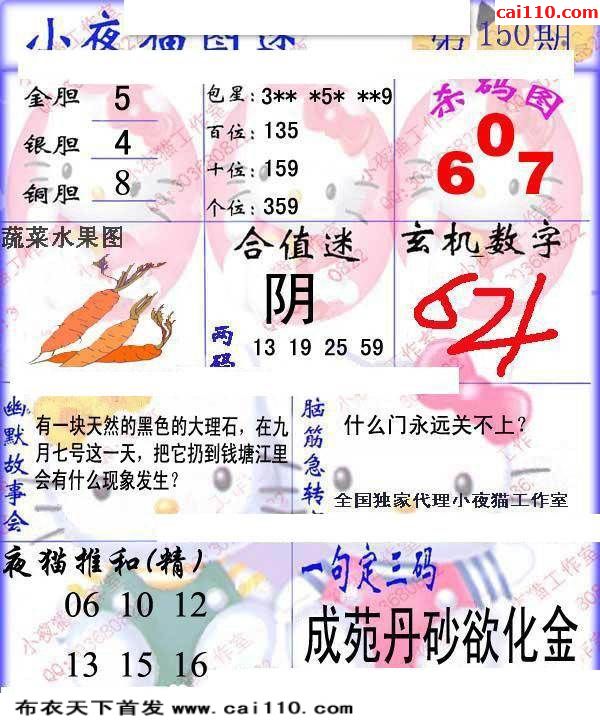 cai110.com
小夜猫图迷
第150期
金胆 5
银胆 4
铜胆 8
包星: 3** *5* **9
百位: 135
十位: 159
个位: 359
杀码图
6 0 7
蔬菜水果图
合值迷
阴
两码
13 19 25 59
玄机数字
幽默故事会
有一块天然的黑色的大理石，在九
月七号这一天，把它扔到钱塘江里
会有什么现象发生？
脑筋急转
什么门永远关不上？
全国独家代理小夜猫工作室
夜猫推和(精)
06 10 12
13 15 16
一句定三码
成苑丹砂欲化金
布衣天下首发 www.cai110.com